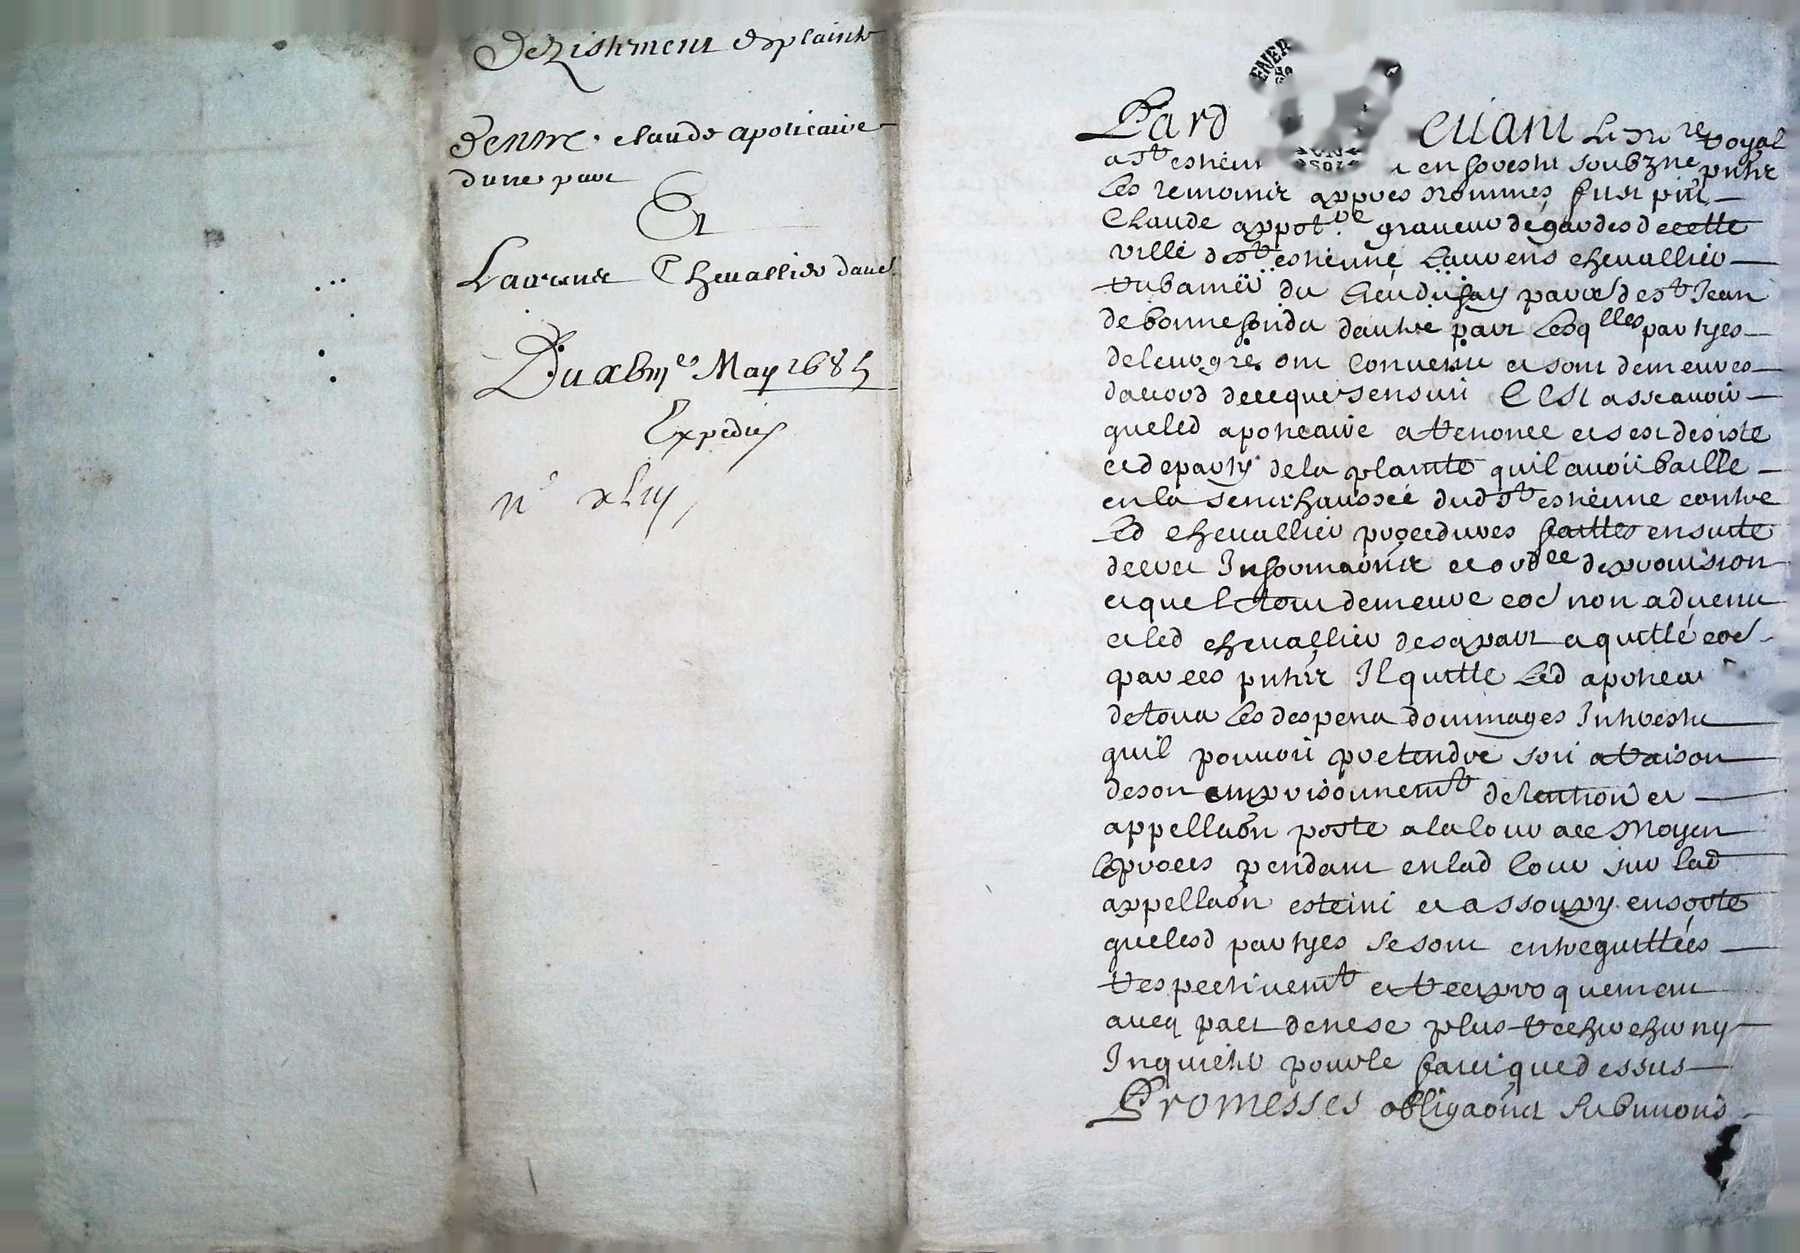 Dezistement de plainte
Dentre claude apoticaire
dune part
Et
Laurens Chevallier dautre
Du xbm es May 1685
Expedies
n° xliij
ENER
SOZ
Pard evant Le No re Royal
a St estienne en forestz soubzne
Les temoins appres nommes fust pnt
Claude appot re graveur de gardes de cette
ville de St estienne Laurens chevallier
rubanier du lieu du fay paroe de St Jean
de bonnefondz dautre part Lesq lles partyes
de leur gre ont Convenu et sont demeures
daccord de ce que sensuit C Est asscavoir
que led apoticaire a renonce et sest desiste
et departy de la plainte quil avoit baille
en la senechaussee dud St estienne contre
led chevallier procedures faittes ensuite
dicelle Informaons et ord ce de provision
et que le tout demeure coe non advenu
et led chevallier de sa part a quitté coe
par ces pntes Il quitte led apoticai
de tous les despens dommages Interestz
quil pouvoit pretendre soit a raison
de son emprisonnemt detention et
appellaon poste a la Cour au Moyen
le proces pendant en lad Cour sur lad
appellaon esteint et assoupy en sorte
que lesd partyes se sont entrequittées
respectivemt et reciproquement
avecq pact de ne se plus rechercher ny
Inquieter pour le fait que dessus
Promesses obligaons submions